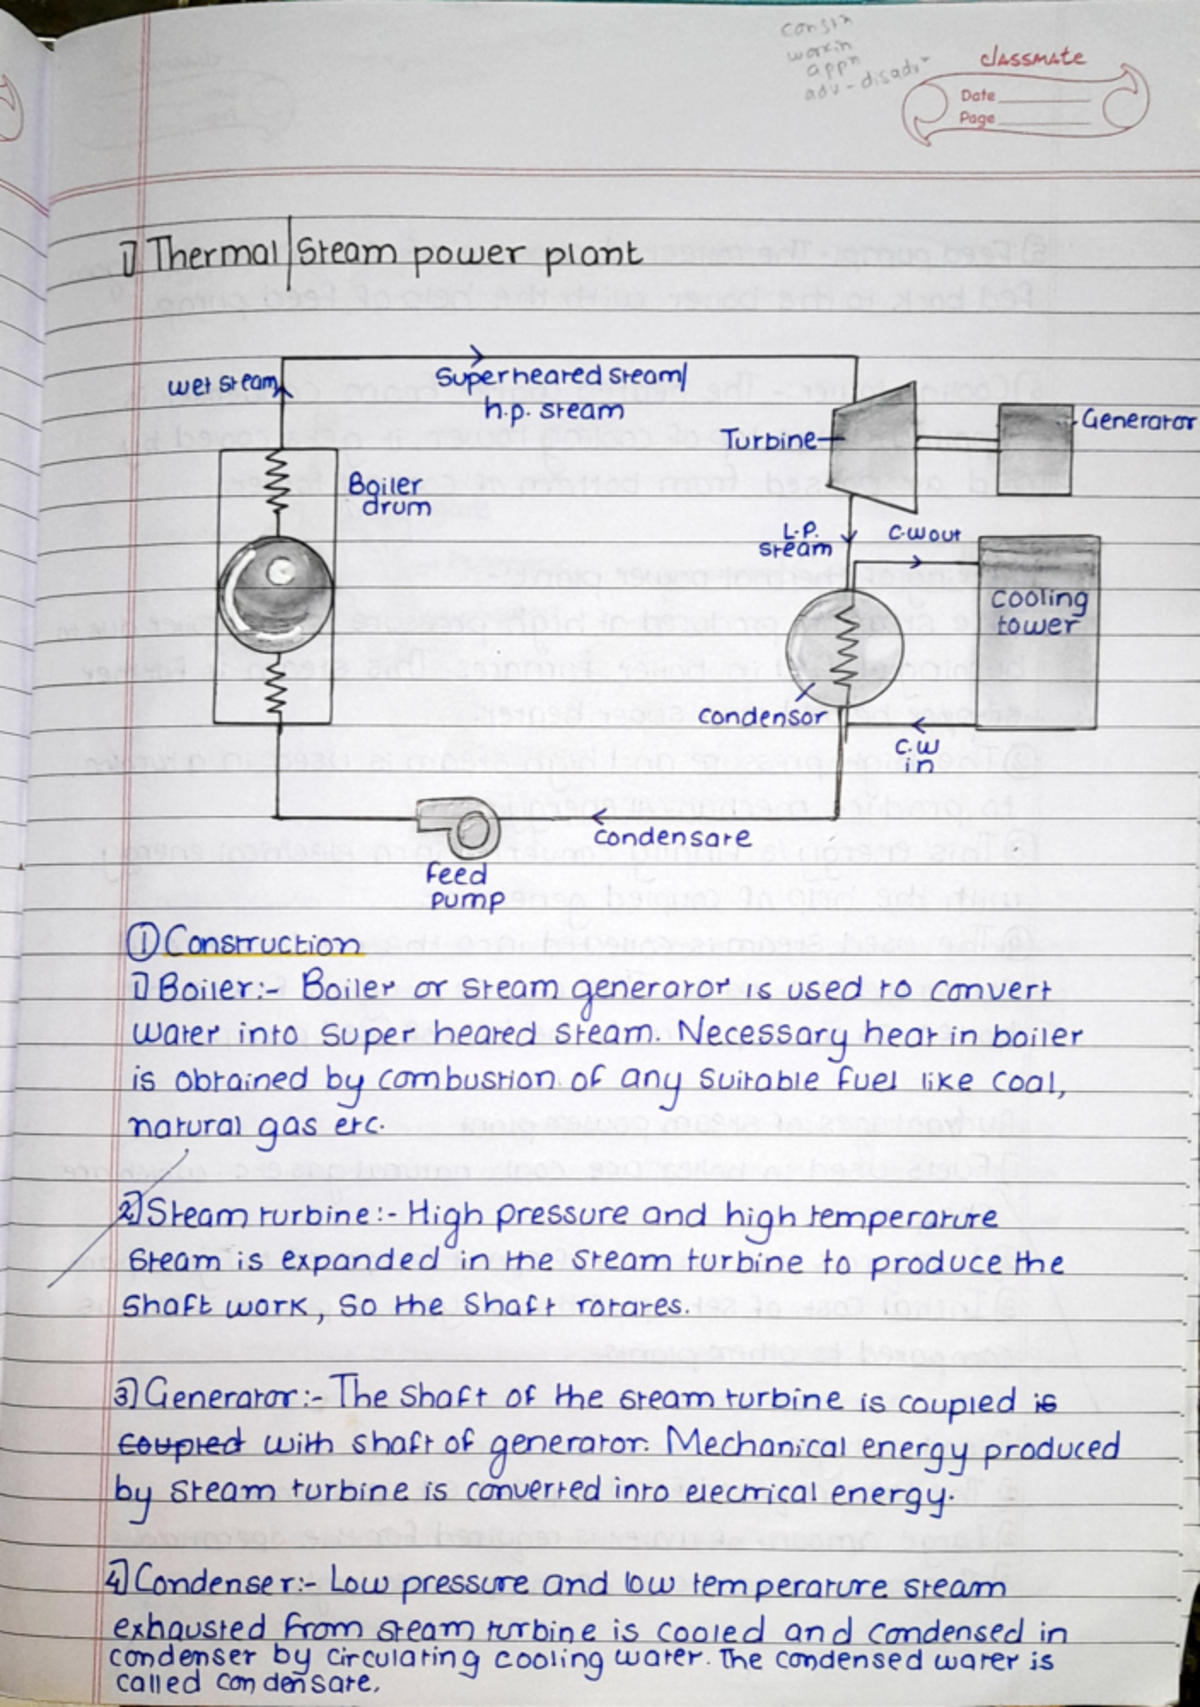 constn
workin
appn
adv-disadv
classmate
Date
Page
1] Thermal/Steam power plant
wet steam
Superheated steam/
h.p. steam
Turbine
Generator
Boiler
drum
L.P.
steam
C.W out
Cooling
tower
Condensor
C.W
in
Condensate
feed
pump
① Construction
1] Boiler:- Boiler or steam generator is used to convert
water into super heated steam. Necessary heat in boiler
is obtained by combustion of any suitable fuel like coal,
natural gas etc.
2] Steam turbine:- High pressure and high temperature
steam is expanded in the steam turbine to produce the
shaft work, so the shaft rotates.
3] Generator:- The shaft of the steam turbine is coupled is
coupled with shaft of generator. Mechanical energy produced
by steam turbine is converted into electrical energy.
4] Condenser:- Low pressure and low temperature steam
exhausted from steam turbine is cooled and condensed in
condenser by circulating cooling water. The condensed water is
called condensate.